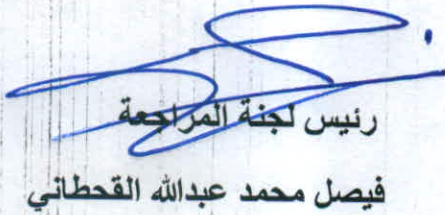 رئيس لجنة المراجعة
فيصل محمد عبدالله القحطاني